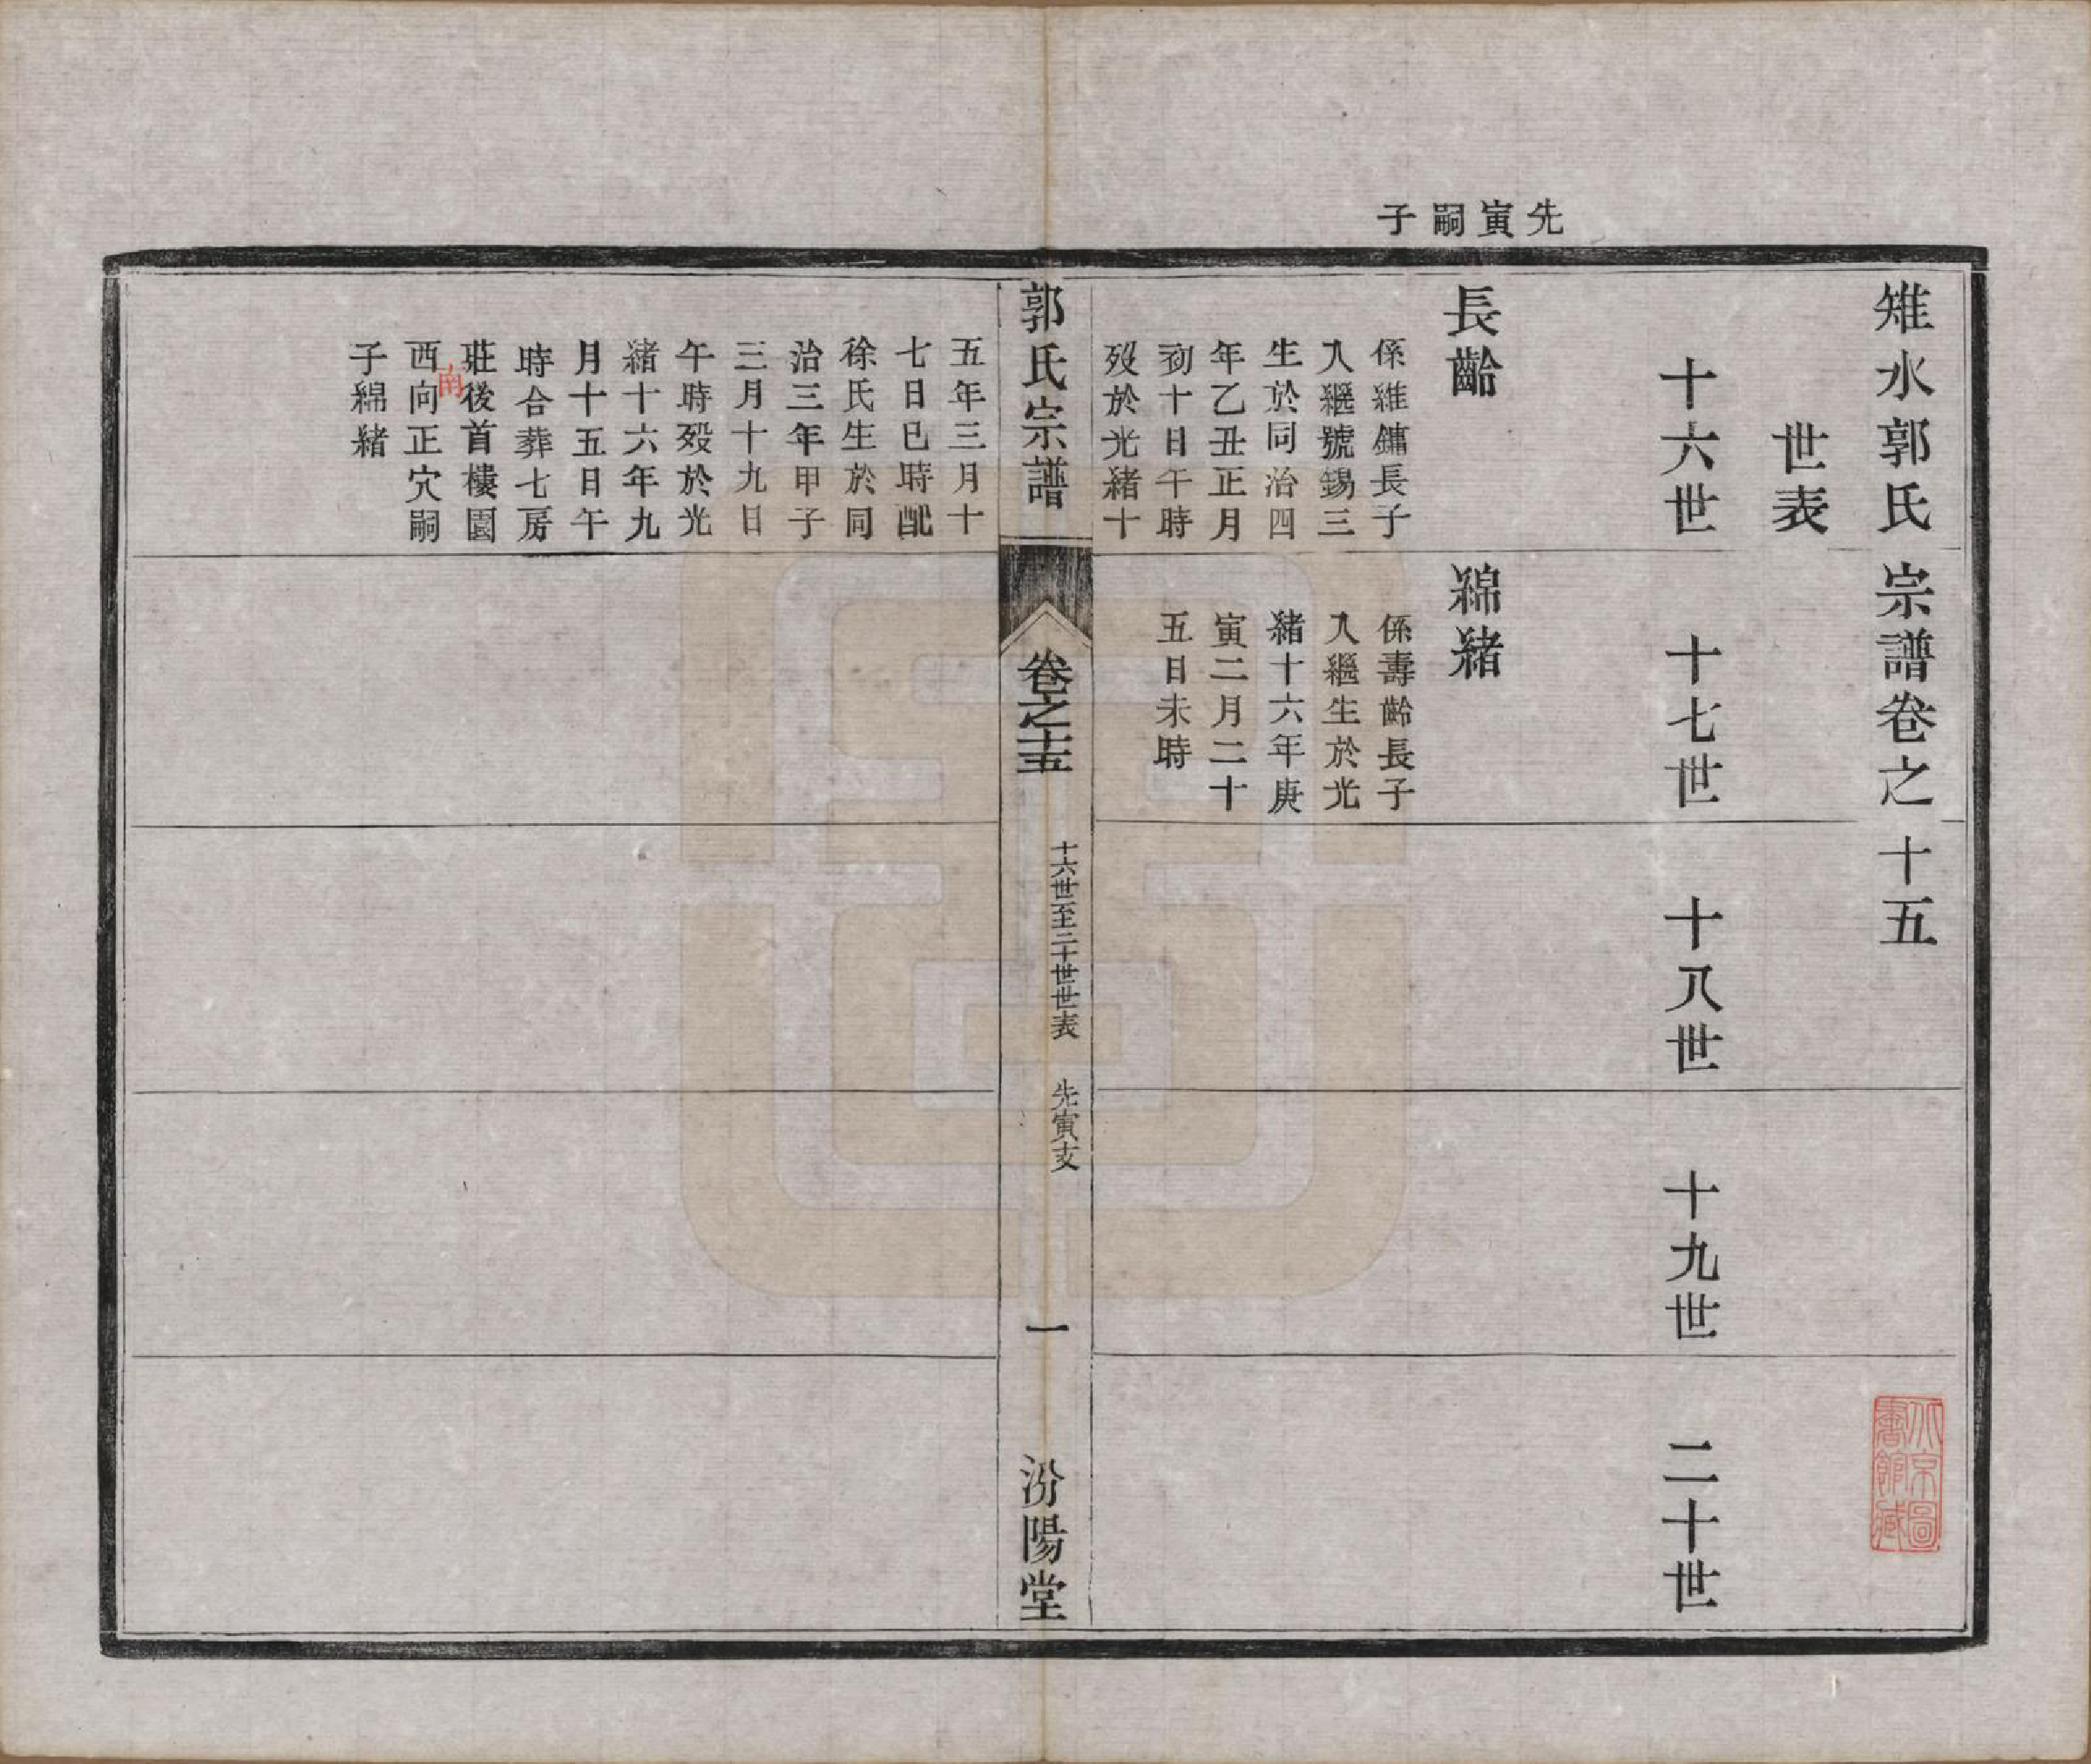 雉水郭氏宗譜卷之十五
世表
十六世
十七世
十八世
十九世
二十世
先寅嗣子
長齡
係維鏞長子
入繼號錫三
生於同治四
年乙丑正月
初十日午時
歿於光緒十
五年三月十
七日巳時配
徐氏生於同
治三年甲子
三月十九日
午時歿於光
緒十六年九
月十五日午
時合葬七房
莊後首樓園
南
西向正穴嗣
子綿緒
綿緒
係壽齡長子
入繼生於光
緒十六年庚
寅二月二十
五日未時
郭氏宗譜
卷之十五
十六世至二十世世表
先寅支
一
汾陽堂
北京圖
書館藏